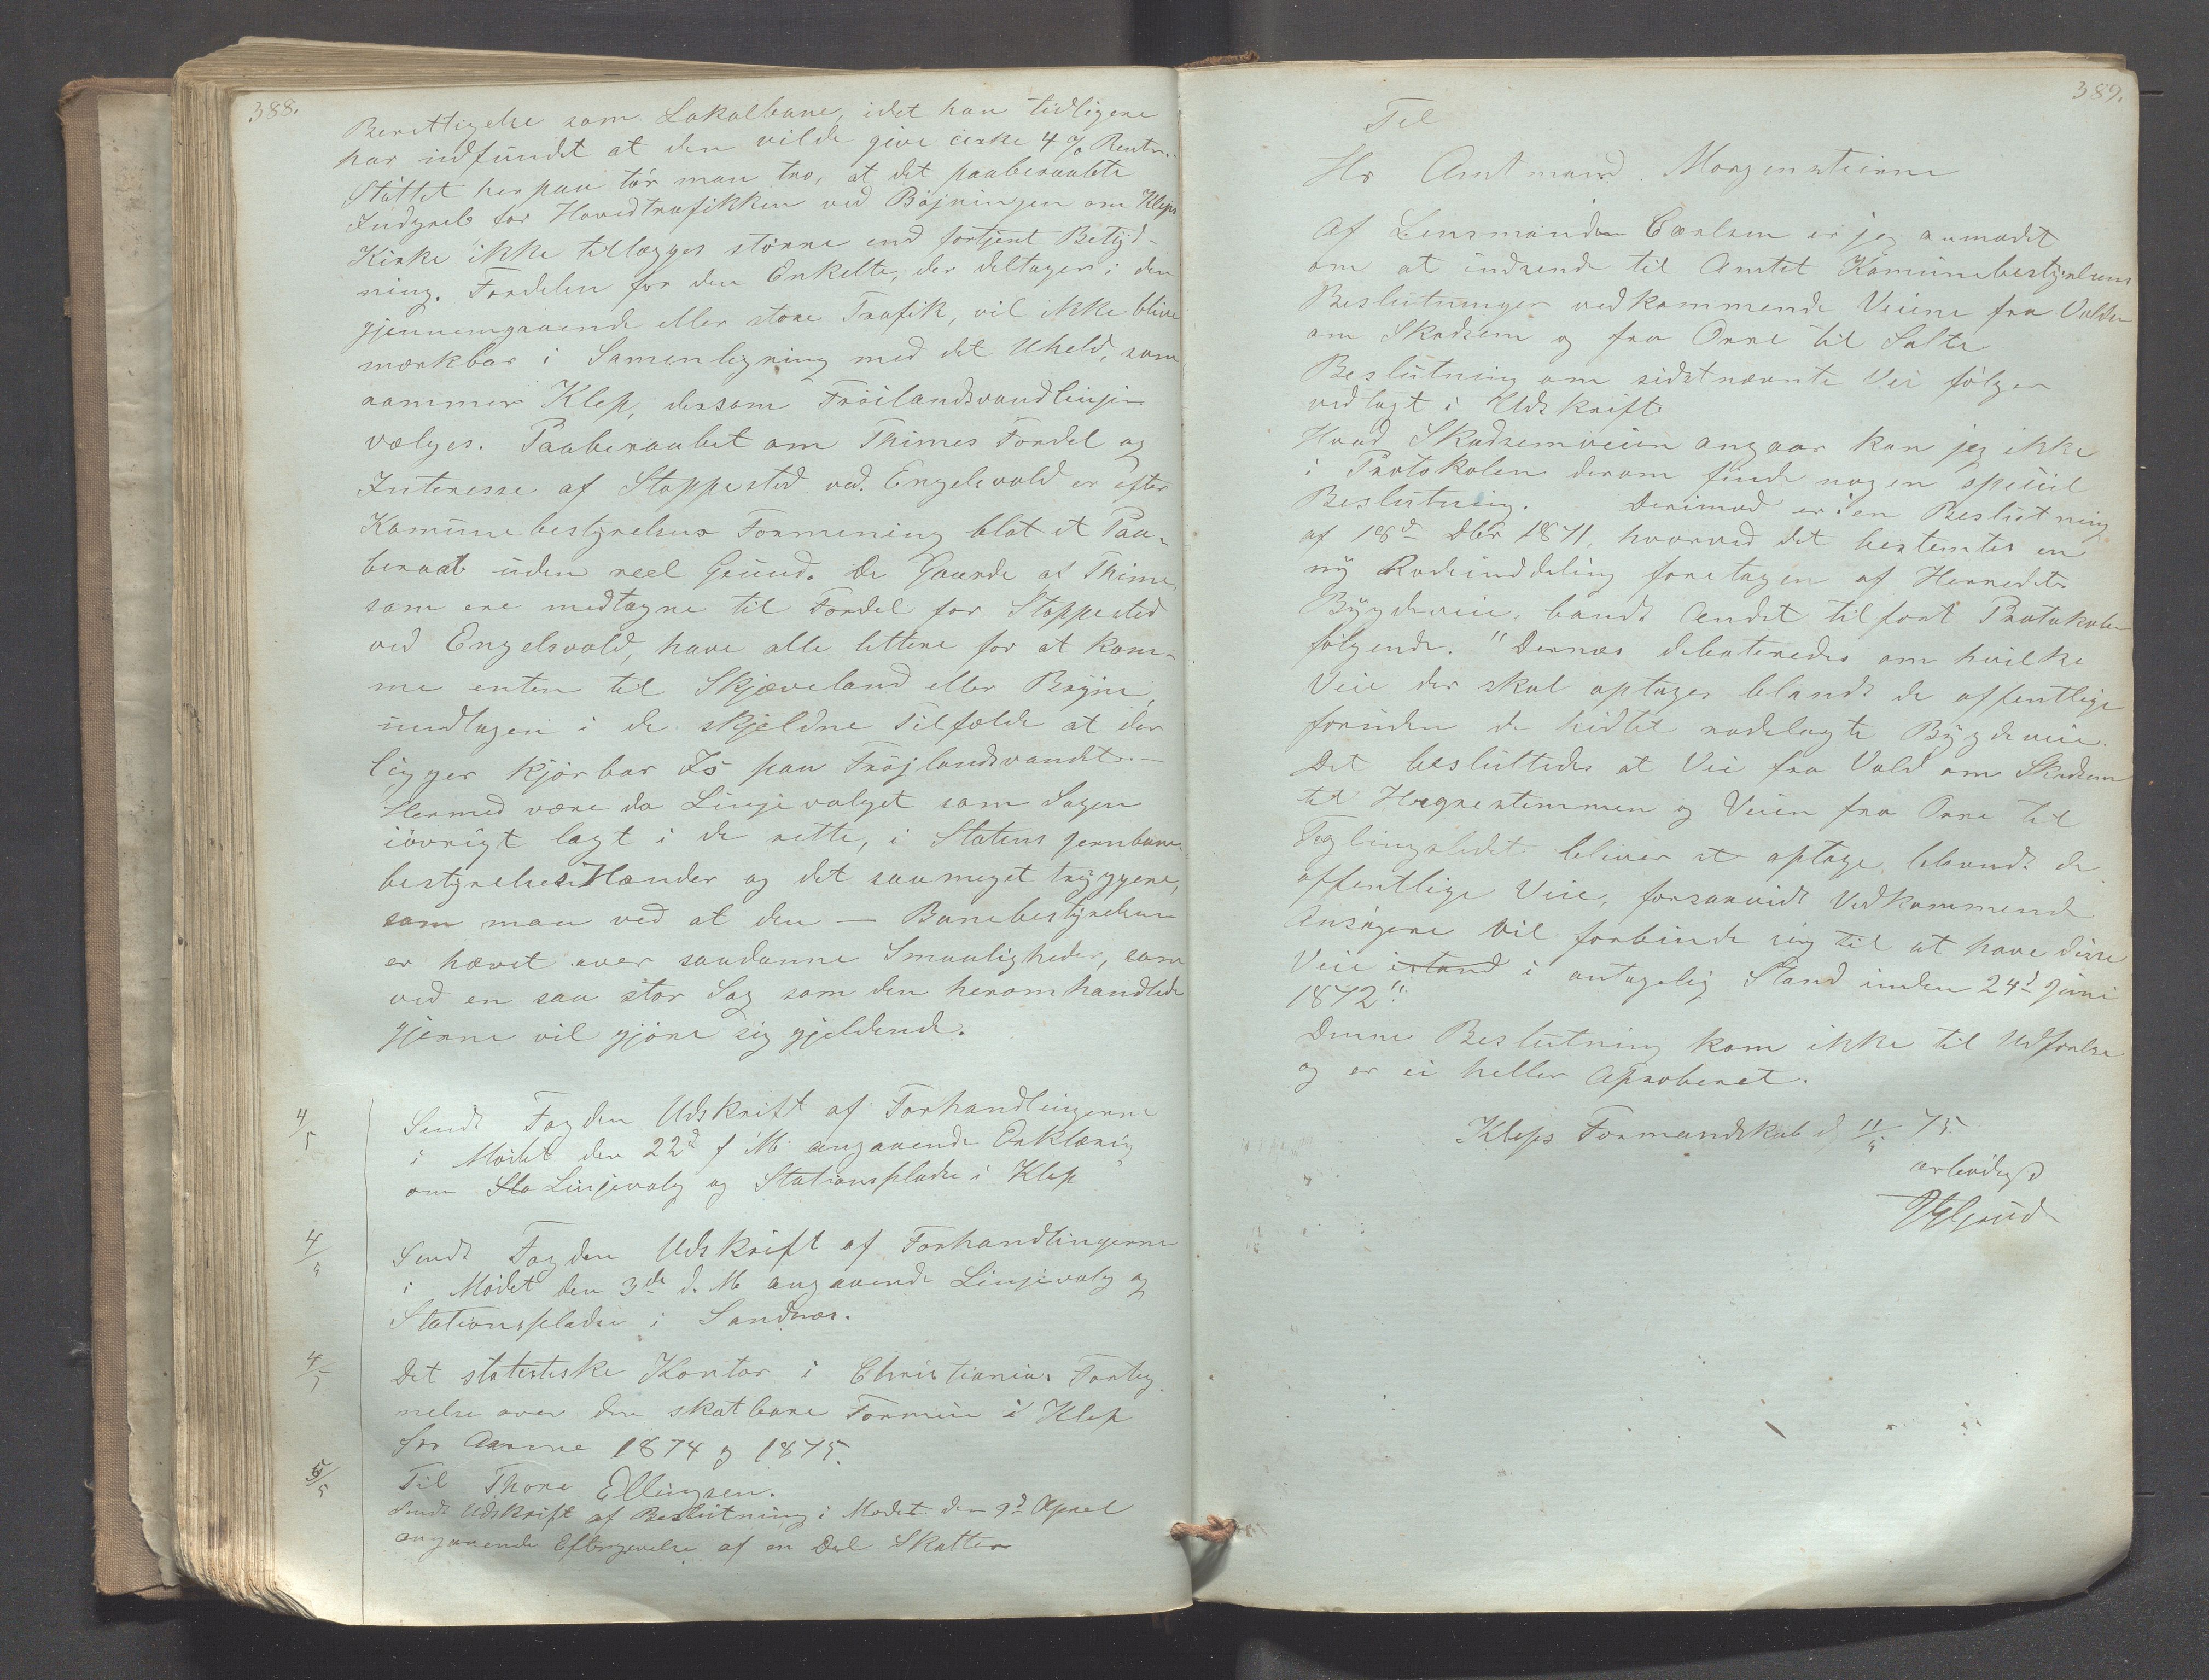 388.
Berettigelse som Lokalbane, idet han tidligere
har udfundet at den vilde give cirke 4 % Rente.
Støttet herpaa tør man tro, at det paaberaabte
Indgreb for Hovedtrafikken ved Bøjningen om Kleps
Kirke ikke tillægges større end fortjent Betyd-
ning. Fordelen for den Enkelte, der deltager i den
gjennemgaaende eller store Trafik, vil ikke blive
mærkbar i Samenligning med det Uheld, som
rammer Klep, dersom Frøilandsvandlinjen
vælges. Paaberaabet om Thimes Fordel og
Interesse af Stoppested ved Engelsvold er efter
Komunebestyrelsens Formening blot et Paa-
beraab uden reel Grund. De Gaarde af Thime,
som ere medtagne til Fordel for Stoppested
ved Engelsvold, have alle lettere for at kom-
me enten til Skjæveland eller Bryne,
undtagen i de skjeldne Tilfælde at der
ligger kjørbar Is paa Frøjlandsvandet. —
Hermed være da Linjevalget som Sagen
iøvrigt lagt i de rette, i Statens Jernbane-
bestyrelses Hænder og det saameget tryggere,
som man ved at den — Banebestyrelsen
er hævet over saadanne Smaaligheder, som
ved en saa stor Sag som den heromhandlede
gjerne vil gjøre sig gjeldende.
4/5 Sendt Fogden Udskrift af Forhandlingerne
i Mødet den 22d f M. angaaende Erklæring
om Sta Linjevalg og Stationspladse i Klep
4/5 Sendt Fogden Udskrift af Forhandlingerne
i Mødet den 3de d. M. angaaende Linjevalg og
Stationspladse i Sandnæs.
4/5 Det statistiske Kontor i Christiania. Forteg-
nelse over den skatbare Formue i Klep
for Aarene 1874 og 1875.
5/5 Til Thore Ellingsen.
Sendt Udskrift af Beslutning i Mødet den 9d April
angaaende Eftergivelse af en Del Skatter
389.
Til
Hr Amtmand Morgenstierne
Af Lensmanden Carlsen er jeg anmodet
om at indsende til Amtet Komunebestyrelsens
Beslutninger vedkommende Veiene fra Volden
om Skadsem og fra Orre til Salte.
Beslutning om sidstnævnte Vei følger
vedlagt i Udskrift.
Hvad Skadsemveien angaar kan jeg ikke
i Protokolen derom finde nogen speciel
Beslutning. Derimod er i en Beslutning
af 18d Dbr 1871, hvorved det bestemtes en
ny Rodeinddeling foretagen af Herredets
Bygdeveie, blandt Andet tilført Protokolen
følgende. "Dernæs debateredes om hvilke
Veie der skal optages blandt de offentlige
foruden de hidtil rodelagte Bygdeveie.
Det besluttedes at Vei fra Vold om Skadsem
til Hognestemmen og Veien fra Orre til
bliver at optage blandt de
offentlige Veie, forsaavidt Vedkommende
Ansøgere vil forbinde sig til at have disse
Veie istand i antagelig Stand inden 24d Juni
1872".
Denne Beslutning kom ikke til Udførelse
og er ei heller Aproberet.
Kleps Formandskab d 11/5 75.
ærbødigst